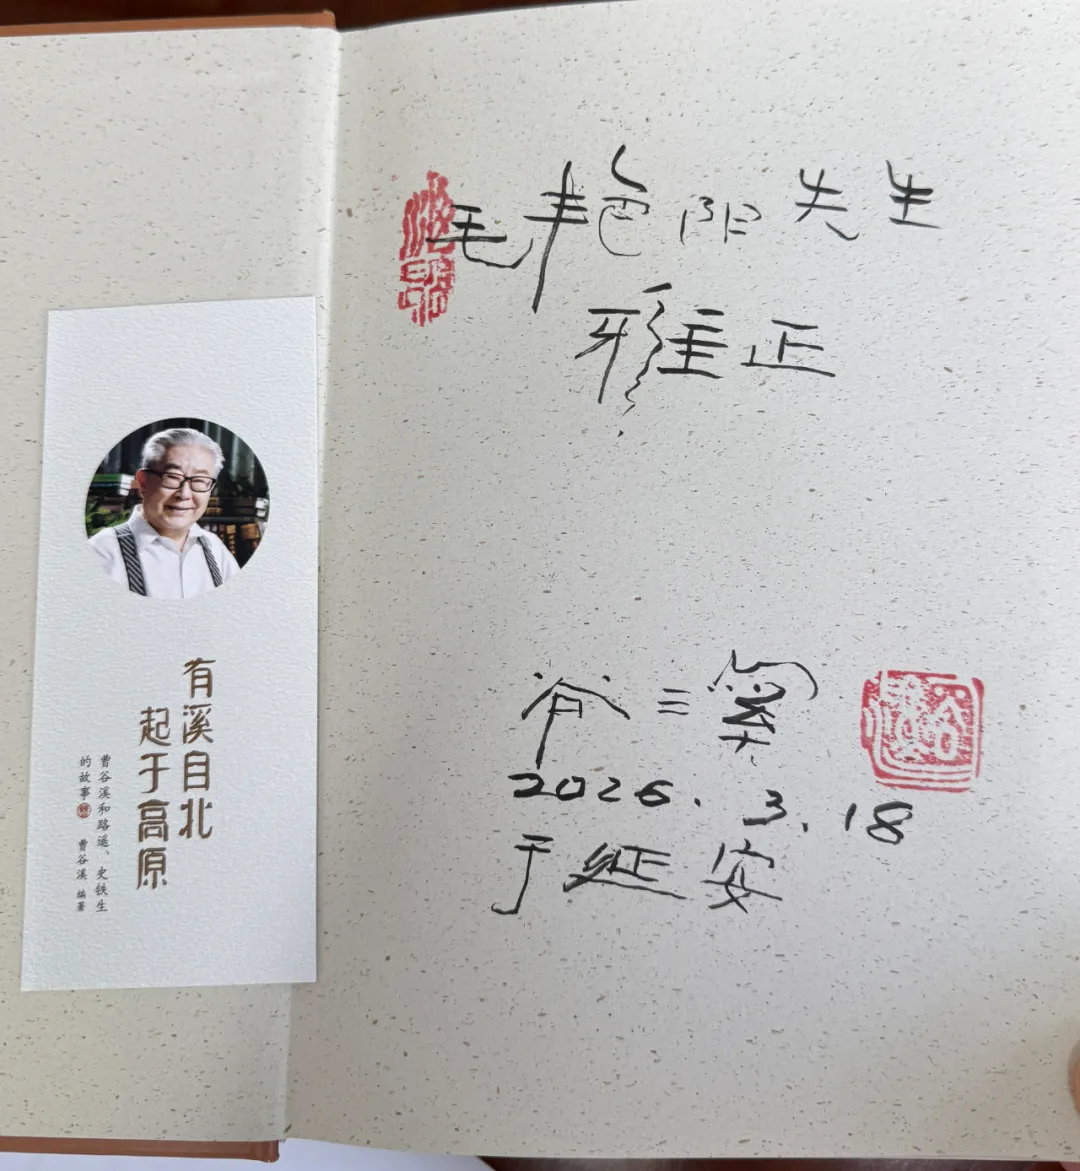 有溪自北
起于高原
曹谷溪和路遥、史铁生
的故事 曹谷溪 编著
毛艳阳先生
雅正
谷溪
2026.3.18
于延安